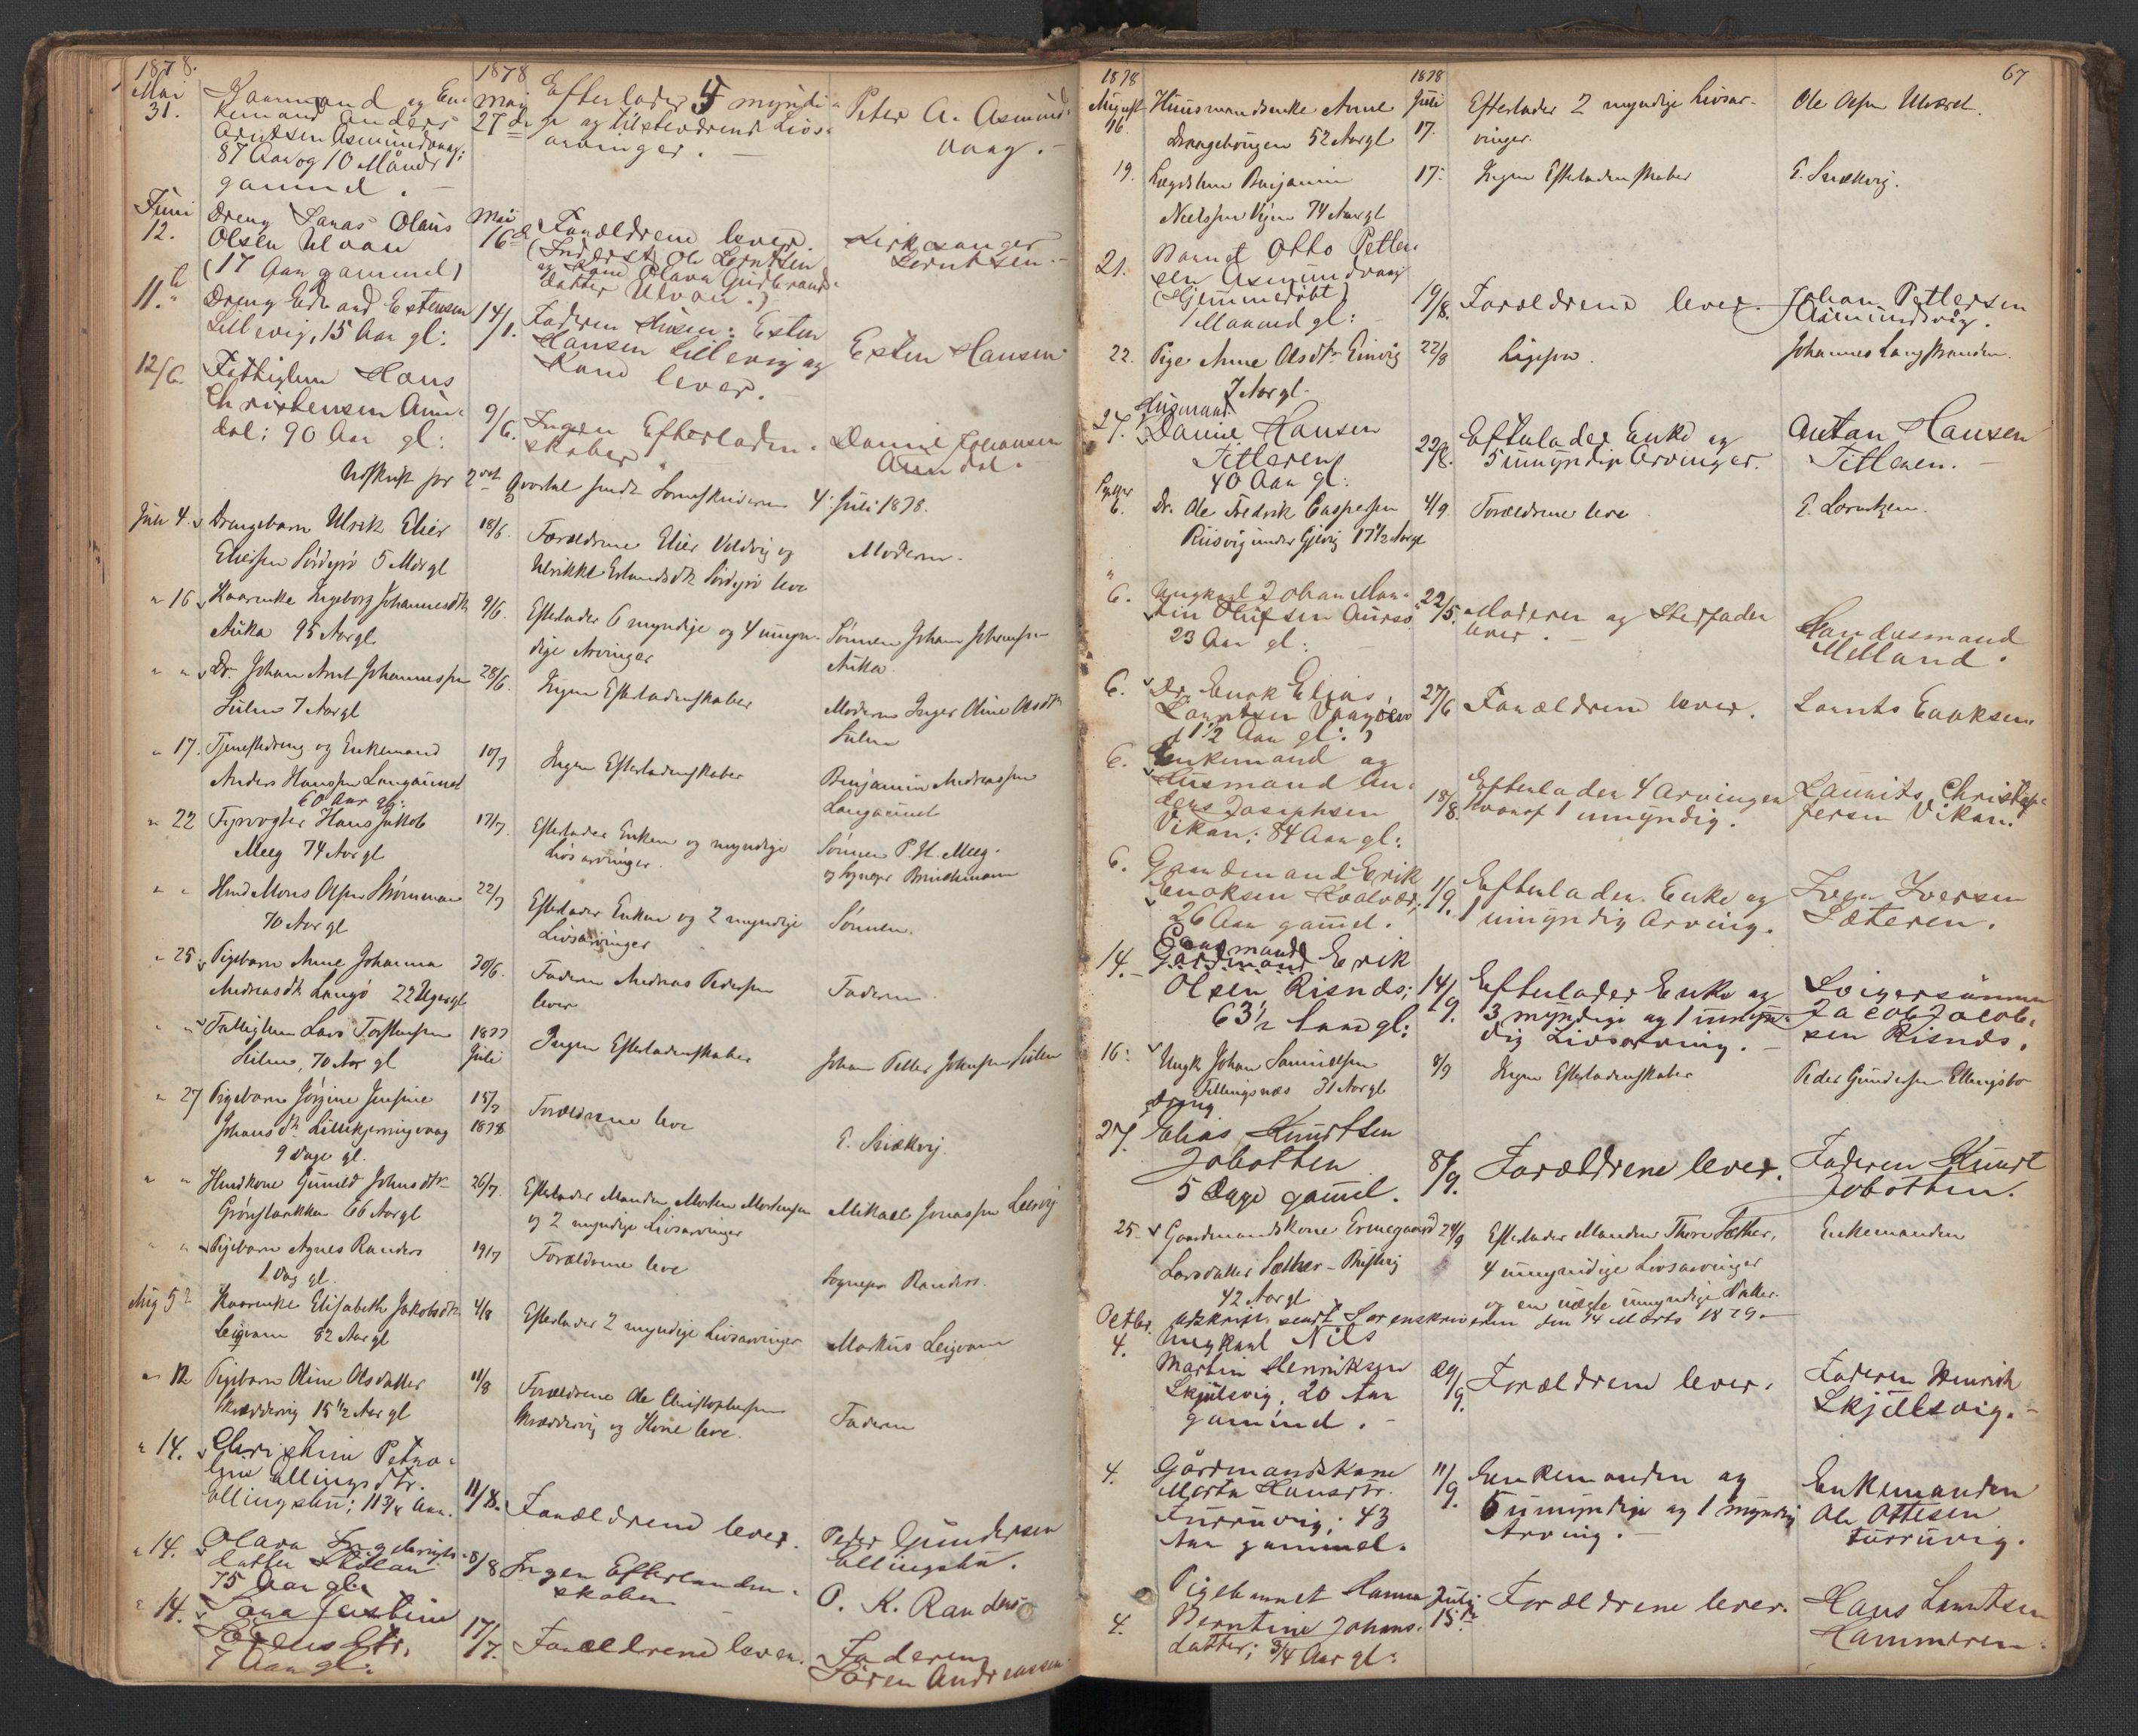 1878.
Mai
31.
Kaarmand og En-
kemand Anders
Arntsen Asmundvaag;
87 Aar og 10 Månder
gammel.
1878
Maj
27de
Efterlader 5 myndi-
ge og tilstedværende Livs-
arvinger.
Peter A. Asmund-
vaag.
Juni
12.
Dreng Jonas Olaus
Olsen Ulvan
(17 Aar gammel)
Mai
16de
Forældrene lever.
(Inderst Ole Lorntsen
og Kone Olava Gudbrands-
datter Ulvan.)
Kirkesanger
Lorntsen.
11.
Dreng Edvard Estensen
Lillevig, 15 Aar gl:
14/1.
Faderen Husm: Esten
Hansen Lillevig og
Kone lever.
Esten Hansen
12/6.
Fattiglem Hans
Christensen Aun-
dal; 90 Aar gl:
9/6.
Ingen Efterladen-
skaber.
Daniel Johansen
Aundal.
Udskrift for 2det Qvartal sendt Sorenskriveren 4 Juli 1878.
Juli 4.
Drengebarn Ulrik Elier
Eliersen Sördyrö 5 Mdr gl
18/6.
Forældrene Elier Voldvig og
Ulrikke Erlandsdtr Sördyrö leve
Moderen.
" 16
Kaarenke Ingeborg Johannesdtr
Auka 95 Aar gl
9/6.
Efterlader 6 myndige og 4 umyn-
dige Arvinger
Sønnen Johan Johansen
Auka.
" "
Dr. Johan Arnt Johannessen
Sulen 7 Aar gl
28/6.
Ingen Efterladenskaber
Moderen Inger Oline Olsdtr
Sulen
" 17.
Tjenestedreng og Enkemand
Anders Hansen Langaunet
60 Aar gl:
10/7
Ingen Efterladenskaber
Benjamin Andreassen
Langaunet
" 22
Fyrvogter Hans Jakob
Meeg 74 Aar gl
17/7.
Efterlader Enken og myndige
Livsarvinger.
Sønnen P. H. Meeg.
og Sognepr Brinchmann
" "
Husmd Mons Olsen Strømmen
70 Aar gl
22/7
Efterlader Enken og 2 myndige
Livsarvinger
Sønnen.
" 25
Pigebarn Anne Johanna
Andreasdtr Langø 22 Uger gl
30/6.
Faderen Andreas Pedersen
lever
Faderen
" "
Fattiglem Lars Torstensen
Sulen, 70 Aar gl
1877
Juli
Ingen Efterladenskaber
Johan Petter Johansen Sulen
" 27
Pigebarn Jörgine Jensine
Johansdtr Lillekjerringvaag
9 Dage gl.
15/7
1878
Forældrene leve
E. Snekvig.
" "
Husmdkone Gunild Johnsdtr
Grønsbakken 66 Aar gl
26/7.
Efterlader Manden Morten Mortensen
og 2 myndige Livsarvinger
Mikael Jonassen Leervig
" "
Pigebarn Agnes Randers
1 Dag gl.
19/7
Forældrene leve
Sognepr Randers.
Aug 5
Kaarenke Elisabeth Jakobsdtr
Leigvam 82 Aar gl
4/8
Efterlader 2 myndige Livsarvinger
Markus Leigvam
" 12
Pigebarn Oline Olsdatter
Skreddervig 15 1/2 Aar gl
11/8
Forældrene Ole Christophersen
Skreddervig og Kone leve.
Faderen
" 14.
Christine Petro-
line Ellingsdtr.
Ellingsbu; 11 3/4 Aar.
11/8.
Forældrene lever.
Peder Gundersen
Ellingsbu.
" 14.
Olava Ingebrigts-
datter Stolan
75 Aar gl:
8/8
Ingen Efterladen-
skaber
O. K. Randers
" 14.
Sara Justine
Sørensdtr.
7 Aar gl:
17/7.
Forældrene lever.
Faderen
Sören Andreassen.
67
1878
August
16.
Huusmandsenke Anne
Drageberigen 52 Aar gl
1878
Juli
17.
Efterlader 2 myndige Livsar-
vinger.
Ole Olsen Ulværet.
19.
Lægdslem Benjamin
Nielssen Vejen 74 Aar gl
17.
Ingen Efterladenskaber
E. Snekvig.
21.
Barnet Otto Petter-
sen Asmundvaag
(Hjemmedøbt)
1 Maaned gl:
19/8.
Forældrene lever.
Johan Pettersen
Asmundvåg.
22.
Pige Anne Olsdtr Einvig
7 Aar gl.
22/8
Ligesaa.
Johannes Langstranden.
27.
Husmand
Daniel Hansen
Titteren
40 Aar gl:
22/8.
Efterlader Enke og
5 umyndige Arvinger.
Anton Hansen
Titteren.
Septbr
6.
Dr. Ole Fredrik Caspersen
Riisvig under Gjevig 17 1/2 Aar gl
4/9
Forældrene leve
E. Lorntzen.
"
6.
Ungkarl Johan Mar-
tin Olufsen Aursø
23 Aar gl:
22/5.
Moderen og Stedfader
lever.
Handelsmand
Melland.
6.
Dr. Enok Elias
Lorntsen Vaagø
(1 1/2 Aar gl:)
27/6
Forældrene lever.
Lornts Enoksen
6.
Enkemand og
Husmand An-
ders Josephsen
Vikan; 84 Aar gl:
18/8.
Efterlader 4 Arvinger
hvoraf 1 umyndig.
Laurits Christof-
fersen Vikan.
6.
Gaardmand Erik
Enoksen Kvalvær;
26 Aar gammel.
1/9.
Efterlader Enke og
1 umyndig Arving.
Iver Iversen
Sæteren.
14.
Kaarmand
Gardmand Erik
Olsen Risnæs;
63 1/2 Aar gl:
14/9.
Efterlader Enke og
3 myndige og 1 umyn-
dig Livsarving.
Svigersønnen
Jacob Jacob-
sen Risnæs.
16.
Ungk Johan Samuelsen
Fillingsnæs 31 Aar gl
8/9
Ingen Efterladenskaber
Peder Gundersen Ellingsbo
27.
Dreng
Elias Knudtsen
Jobotten
5 Dage gammel.
8/9.
Forældrene lever.
Faderen Knudt
Jobotten.
25
Gaardmandskone Ermegaard
Larsdatter Sæther-Bustvig
42 Aar gl
24/9
Efterlader Manden Thore Sæther,
4 umyndige Livsarvinger
og en uægte umyndige Datter.
Enkemanden
Udskrift sendt Sorenskriveren den 14 Marts 1879.
Octbr.
4.
Ungkarl Nils
Martin Henriksen
Skjelsvig, 20 Aar
gammel.
29/9.
Forældrene lever.
Faderen Henrich
Skjelsvig.
4.
Gårdmandskone
Marta Hansdtr.
Furruvig; 43
Aar gammel.
11/9.
Enkemanden og
6 umyndige og 1 myndig
Arving.
Enkemanden
Ole Ottesen
Furruvig.
4.
Pigebarnet Hanna
Berntine Johans-
datter; 3/4 Aar gl:
July
15de
Forældrene lever.
Hans Lorntsen
Hammeren.